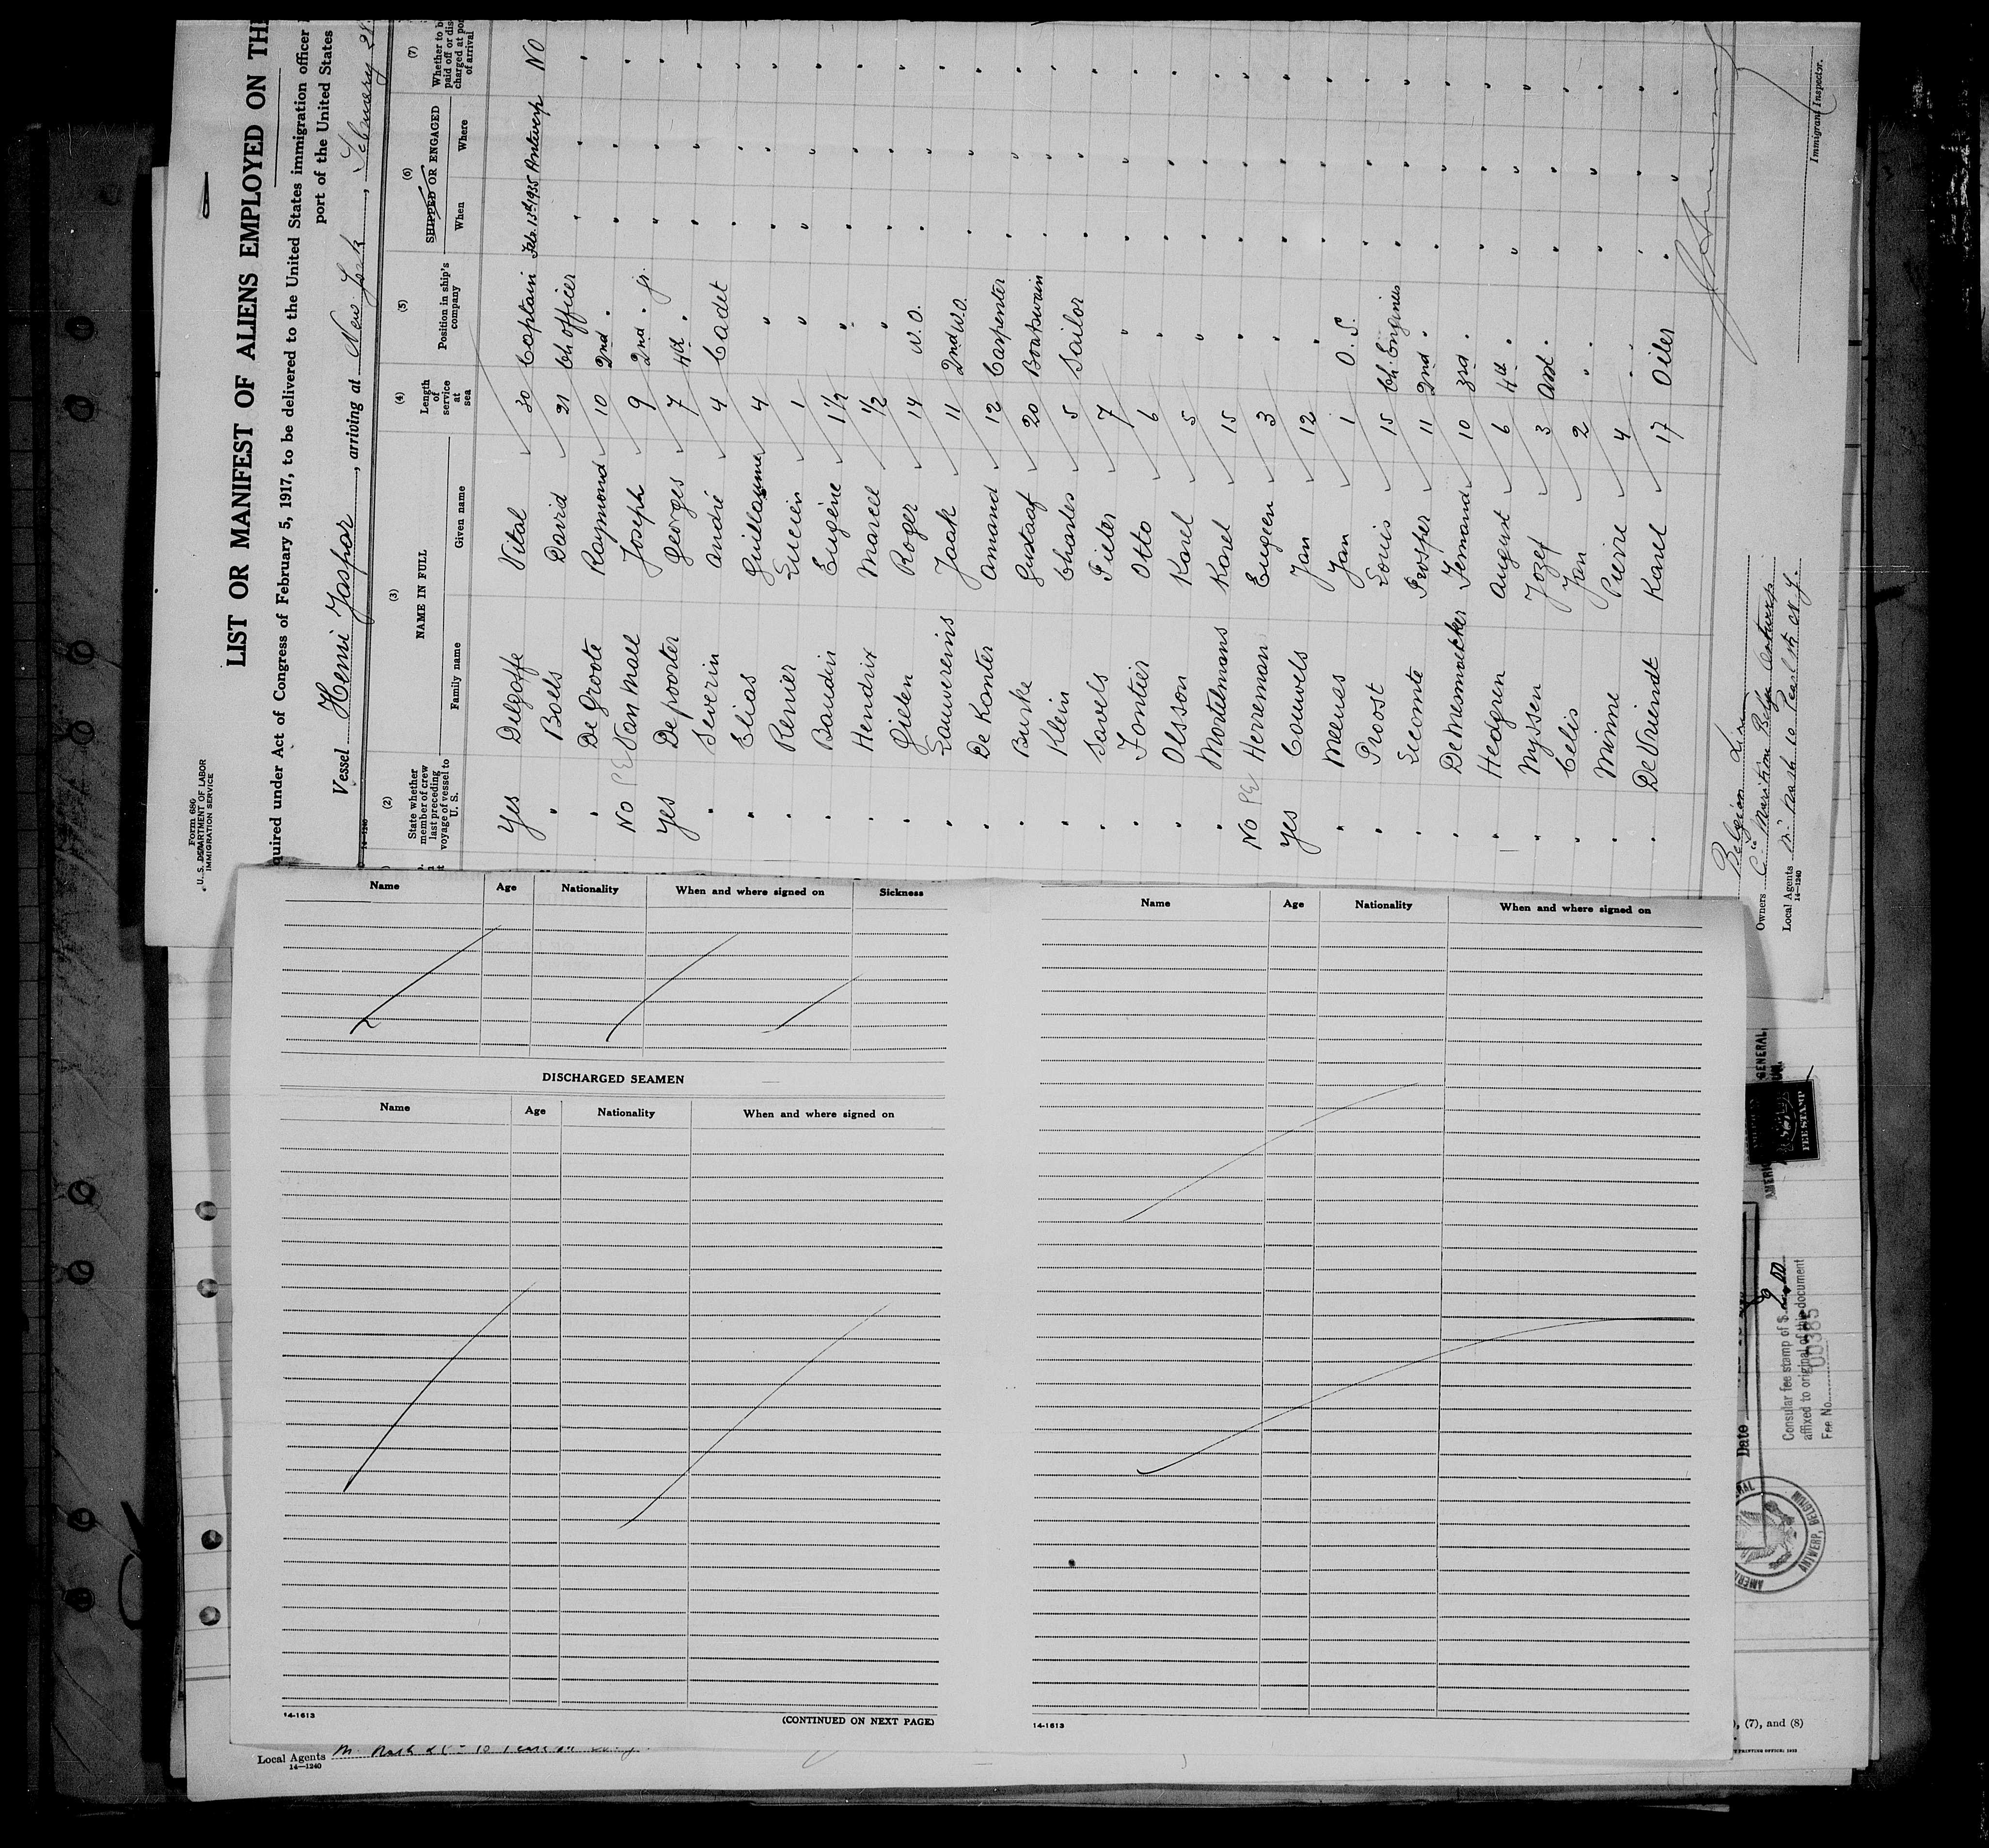 Form 680
U. S. DEPARTMENT OF LABOR
IMMIGRATION SERVICE
LIST OR MANIFEST OF ALIENS EMPLOYED ON TH
quired under Act of Congress of February 5, 1917, to be delivered to the United States immigration officer
port of the United States
Vessel Henri Jaspar, arriving at New York,
14-1240
(2) (3) (4) (5) (6) (7)
State whether member of crew last preceding voyage of vessel to U. S.
NAME IN FULL
Family name Given name
Length of service at sea
Position in ship's company
SHIPPED OR ENGAGED
When Where
Whether to be paid off or dis charged at por of arrival
Yes Delgoffe Vital 30 Captain Feb. 13th 1935 Antwerp NO
" Baels David 21 Ch. officer " " "
" De Groote Raymond 10 2nd " " " "
No PE Van Mall Joseph 9 2nd " jr. " " "
Yes De poorter Georges 7 4th " " " "
" Severin André 4 Cadet " " "
" Elias Guillaume 4 " " " "
" Renier Lucien 1 " " " "
" Baudin Eugène 1 1/2 " " " "
" Hendrix Marcel 1/2 " " " "
" Gielen Roger 14 W. O. " " "
" Lauwereins Jaak 11 2nd W.O. " " "
" De Kanter Amand 12 Carpenter " " "
" Burke Gustaaf 20 Boatswain " " "
" Klein Charles 5 Sailor " " "
" Savels Pieter 7 " " " "
" Fontier Otto 6 " " " "
" Olsson Karel 5 " " " "
" Mortelmans Karel 15 " " " "
No PE Herreman Eugeen 3 " " " "
Yes Couwels Jan 12 " " " "
" Meeus Jan 1 O. S. " " "
" Proost Louis 15 Ch. Engineer " " "
" Lecomte Prosper 11 2nd " " " "
" De Mesmaecker Fernand 10 3rd " " " "
" Hedgren August 6 4th " " " "
" Nyssen Jozef 3 Asst. " " " "
" Celis Jan 2 " " " " "
" Minne Pierre 4 " " " " "
" De Vriendt Karel 17 Oiler " " "
Belgian Line
Owners Cie Maritime Belge Antwerp
Local Agents
14-1240
Immigrant Inspector.
Name Age Nationality When and where signed on Sickness
DISCHARGED SEAMEN
Name Age Nationality When and where signed on
14-1613
(CONTINUED ON NEXT PAGE)
Name Age Nationality When and where signed on
14-1613
Local Agents
14-1240
GENERAL,
AMERICAN
FEE STAMP
Date
Consular fee stamp of $ 2.00
affixed to original of this document
Fee No. 00385
ANTWERP, BELGIUM
, (7), and (8)